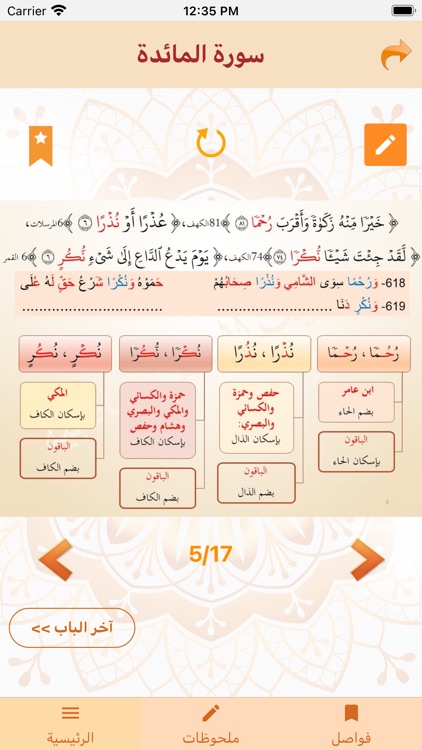 Carrier 12:35 PM
سورة المائدة
﴿ خَيْرًا مِّنْهُ زَكَوٰةً وَأَقْرَبَ رُحْمًا ٨١ ﴾81الكهف، ﴿ عُذْرًا أَوْ نُذْرًا ٦ ﴾6المرسلات،
﴿ لَّقَدْ جِئْتَ شَيْـًٔا نُّكْرًا ٧٤ ﴾74الكهف، ﴿ يَوْمَ يَدْعُ ٱلدَّاعِ إِلَىٰ شَىْءٍ نُّكُرٍ ٦ ﴾6 القمر
618- وَرُحْمًا سِوَى الشَّامِي وَنُذْرًا صِحَابُهُمْ حَمَوْهُ وَنُكْرًا شَرْعُ حَقٍّ لَهُ عُلَى
619- وَنُكْرٍ دَنَا ............................ ................................
رُحُمًا ، رُحْمًا نُذْرًا ، نُذُرًا نُكْرًا ، نُكُرًا نُكْرٍ ، نُكُرٍ
ابن عامر
بضم الحاء
الباقون
بإسكان الحاء
حفص وحمزة
والكسائي
والبصري:
بإسكان الذال
الباقون
بضم الذال
حمزة والكسائي
والمكي والبصري
وهشام وحفص
بإسكان الكاف
الباقون
بضم الكاف
المكي
بإسكان الكاف
الباقون
بضم الكاف
5/17
آخر الباب >>
فواصل
ملحوظات
الرئيسية